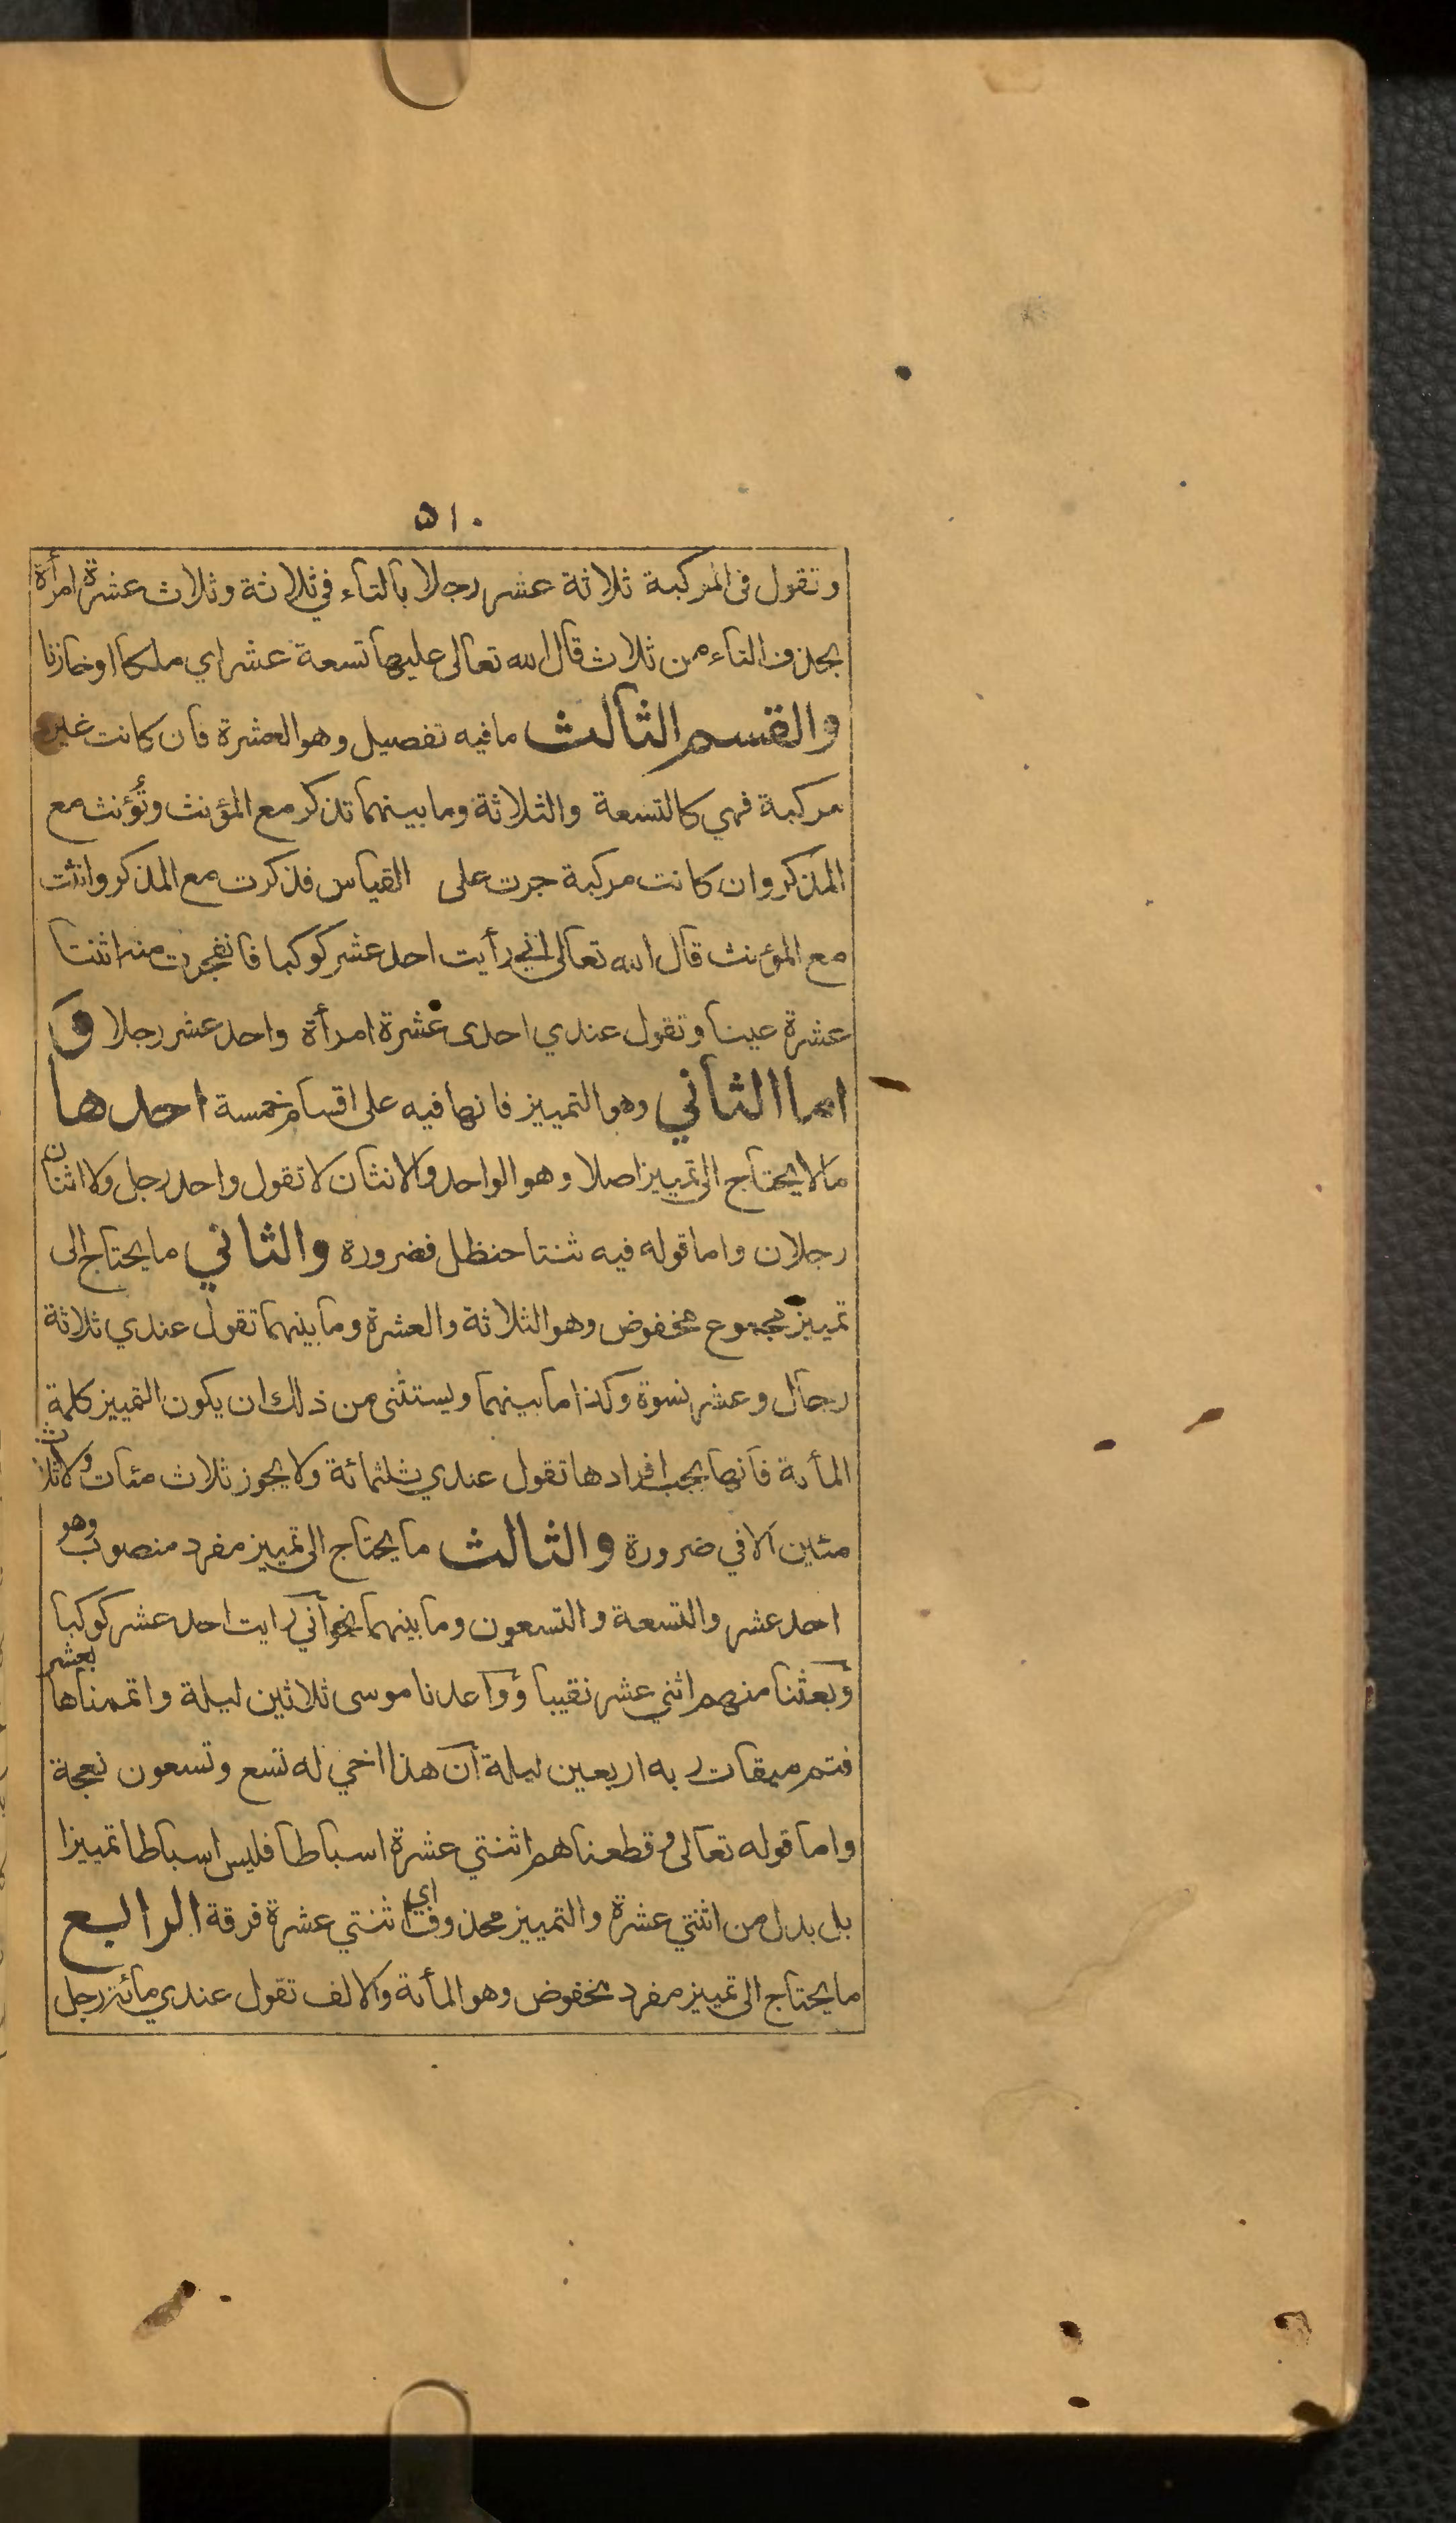 ٥١٠
وتقول فى المركبة ثلاثة عشر رجلا بالتاء في ثلاثة وثلاث عشرة امرأة
بحذف التاء من ثلاث قال الله تعالى عليها تسعة عشر اي ملكا او خازنا
والقسم الثالث مافيه تفصيل وهو العشرة فان كانت غير
مركبة فهي كالتسعة والثلاثة وما بينهما تذكر مع المؤنث وتُؤنث مع
المذكر وان كانت مركبة جرت على القياس فذكرت مع المذكر وانثت
مع المؤنث قال الله تعالى اني رأيت احد عشر كوكبا فانفجرت منه اثنتا
عشرة عينا وتقول عندي احدى عشرة امرأة واحد عشر رجلا وَ
اما الثاني وهو التمييز فانها فيه على اقسام خمسة احدها
مالا يحتاج الى تمييز اصلا وهو الواحد والاثنان لا تقول واحد رجل ولا اثنان
رجلان واما قوله فيه ثنتا حنظل فضرورة والثاني ما يحتاج الى
تمييز مجموع مخفوض وهو الثلاثة والعشرة وما بينهما تقول عندي ثلاثة
رجال وعشر نسوة وكذا ما بينهما ويستثنى من ذلك ان يكون التمييز كلمة
المأية فانها يجب افرادها تقول عندي ثلثمائة ولا يجوز ثلاث مئات ولا ثلاث
مئين الا في ضرورة والثالث ما يحتاج الى تمييز مفرد منصوب وهو
احد عشر والتسعة والتسعون وما بينهما نحو اني رايت احد عشر كوكبا
وبعثنا منهم اثني عشر نقيبا وواعدنا موسى ثلاثين ليلة واتممناها بعشر
فتم ميقات ربه اربعين ليلة ان هذا اخي له تسع وتسعون نعجة
واما قوله تعالى وقطعناهم اثنتي عشرة اسباطا فليس اسباطا تمييزا
بل بدل من اثنتي عشرة والتمييز محذوف اي اثنتي عشرة فرقة الرابع
ما يحتاج الى تمييز مفرد مخفوض وهو المأية والالف تقول عندي مائة رجل